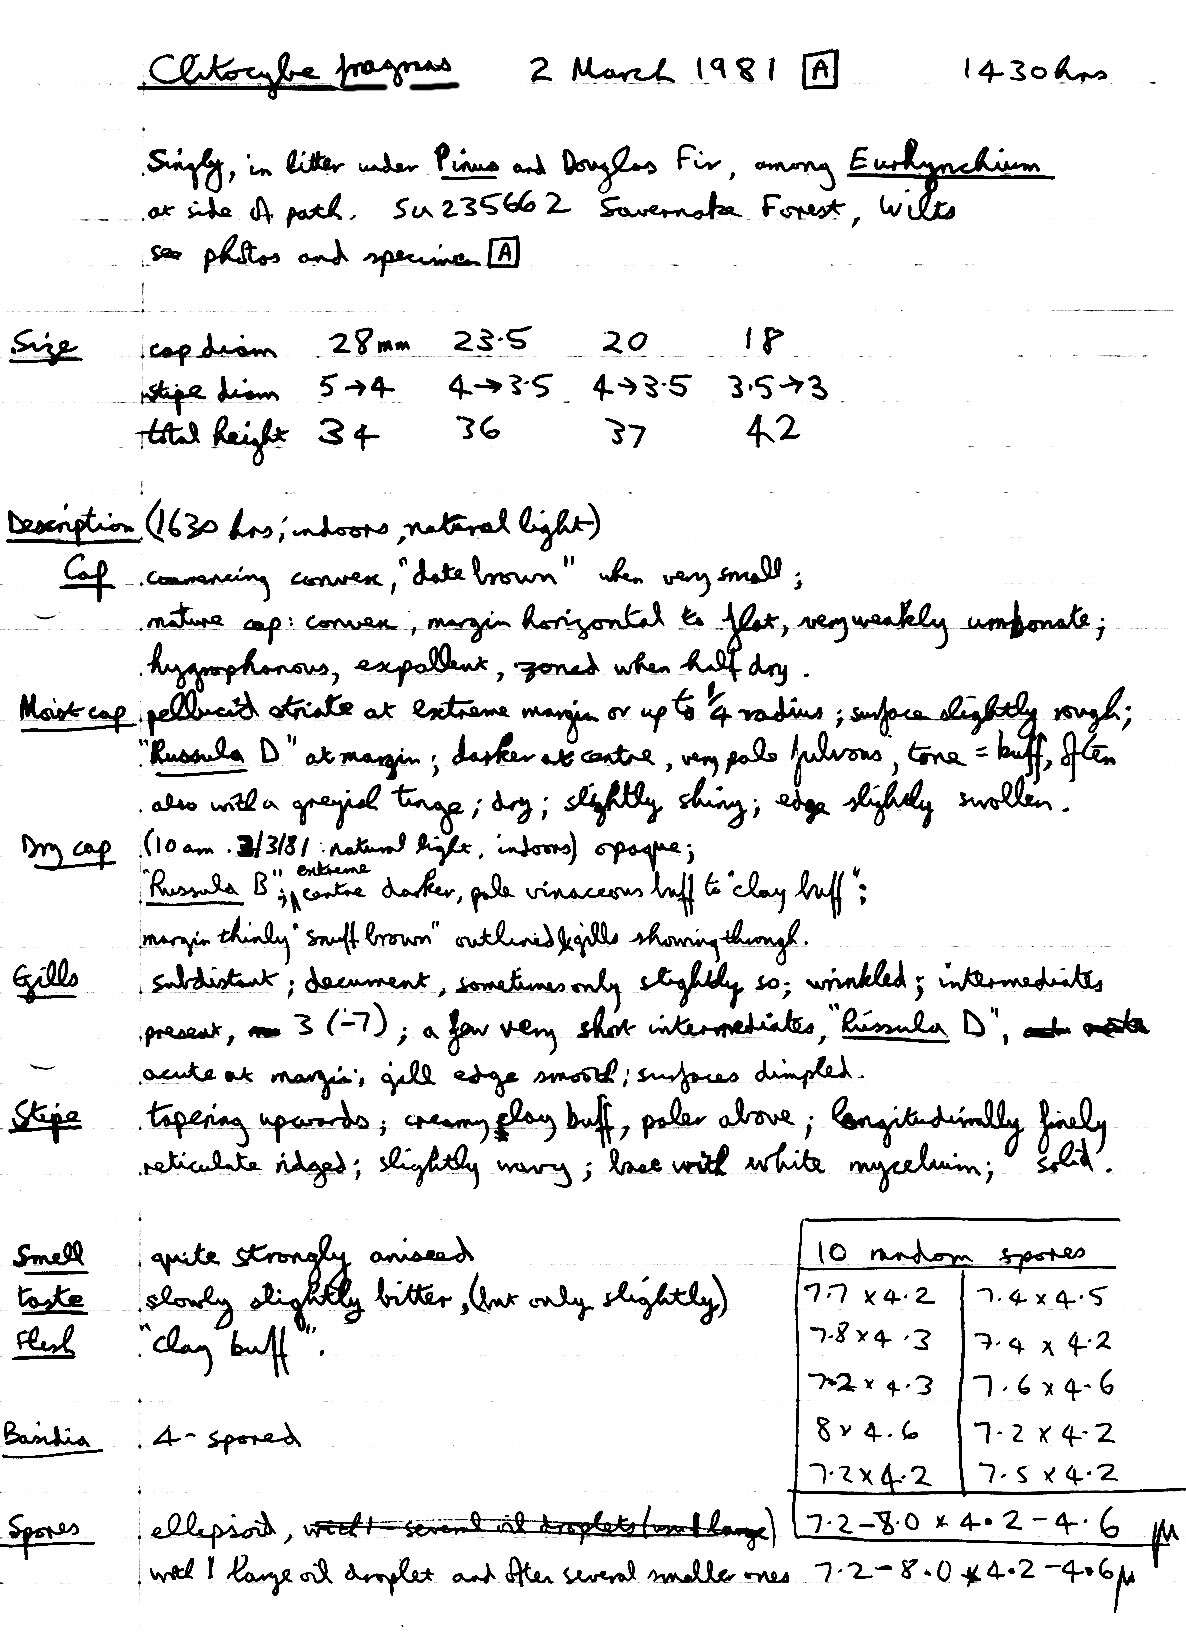 Clitocybe fragrans 2 March 1981 A 1430hrs
Singly, in litter under Pinus and Douglas Fir, among Eurhynchium
at side of path. SU 235662 Savernake Forest, Wilts
see photos and specimen A
Size cap diam 28mm 23.5 20 18
stipe diam 5→4 4→3.5 4→3.5 3.5→3
total height 34 36 37 42
Description (1630 hrs; indoors, natural light)
Cap commencing convex, "date brown" when very small;
mature cap: convex, margin horizontal to flat, very weakly umbonate;
hygrophanous, expallent, zoned when half dry.
Moist cap pellucid striate at extreme margin or up to 1/4 radius; surface slightly rough;
"Russula D" at margin; darker at centre, very pale fulvous, tone = buff, often
also with a greyish tinge; dry; slightly shiny; edge slightly swollen.
Dry cap (10 am. 3/3/81 natural light, indoors) opaque;
"Russula B"; extreme centre darker, pale vinaceous buff to "clay buff";
margin thinly "snuff brown" outlined & gills showing through.
Gills subdistant; decurrent, sometimes only slightly so; wrinkled; intermediates
present, 3 (-7); a few very short intermediates, "Russula D",
acute at margin; gill edge smooth; surfaces dimpled.
Stipe tapering upwards; creamy clay buff, paler above; longitudinally finely
reticulate ridged; slightly wavy; base with white mycelium; solid.
Smell quite strongly aniseed
taste slowly slightly bitter, (but only slightly)
Flesh "clay buff".
Basidia 4-spored
10 random spores
7.7 x 4.2 7.4 x 4.5
7.8 x 4.3 7.4 x 4.2
7.2 x 4.3 7.6 x 4.6
8 x 4.6 7.2 x 4.2
7.2 x 4.2 7.5 x 4.2
7.2-8.0 x 4.2-4.6 μ
Spores ellipsoid, with 1 - several oil droplets (usu 1 large)
with 1 large oil droplet and often several smaller ones 7.2-8.0 x 4.2-4.6μ